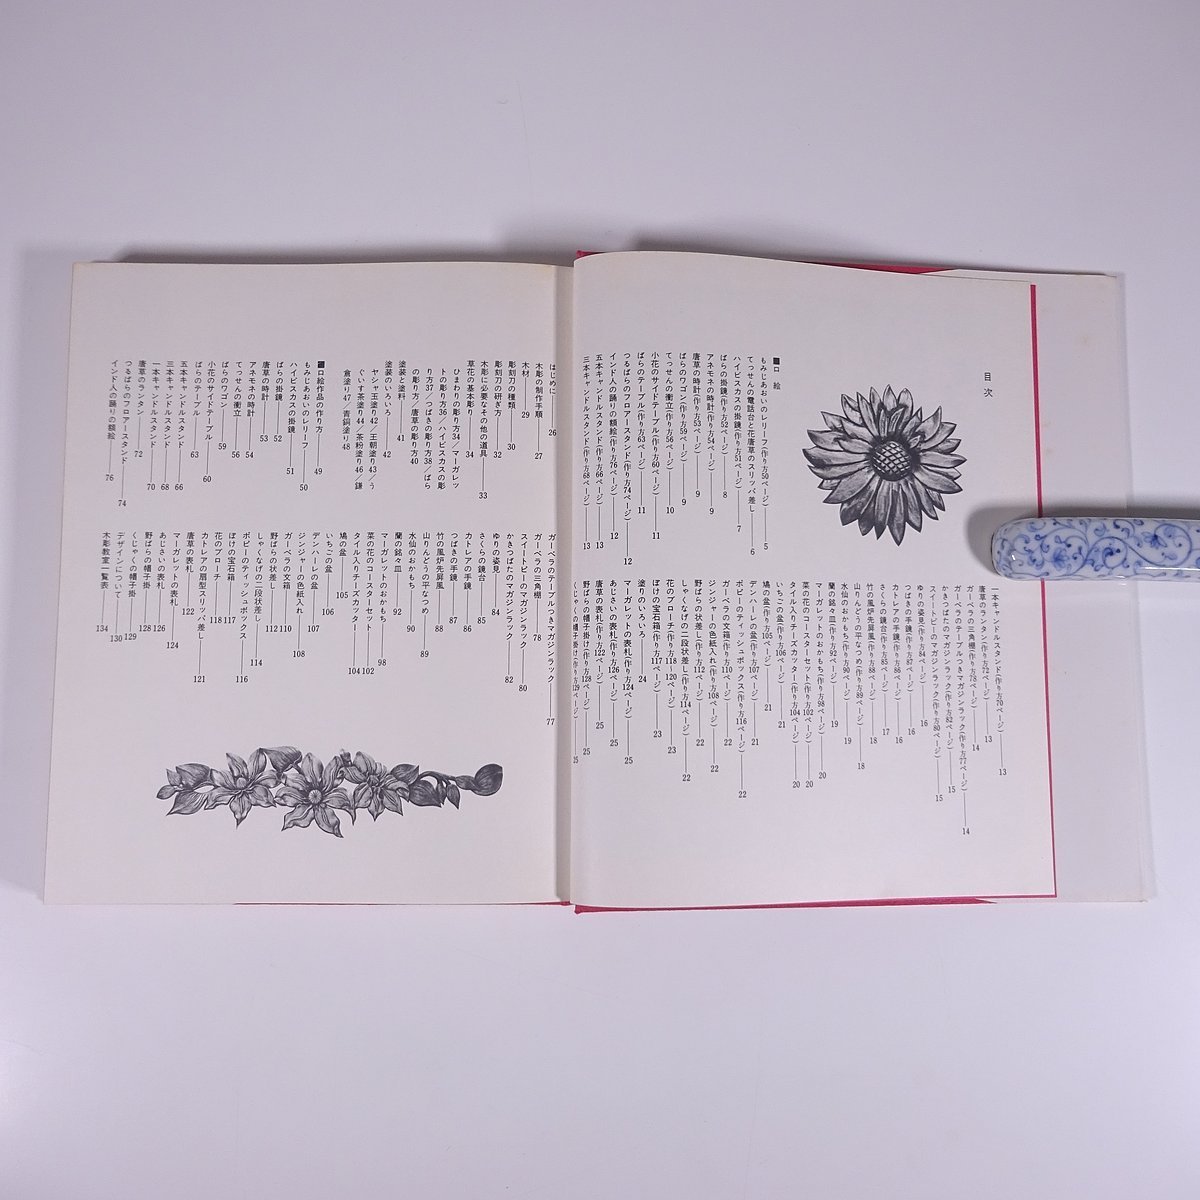 目次
■口絵
もみじあおいのレリーフ(作り方50ページ)――5
てっせんの電話台と花唐草のスリッパ差し――6
ハイビスカスの掛鏡(作り方51ページ)――7
ばらの掛鏡(作り方52ページ)――8
アネモネの時計(作り方54ページ)――9
唐草の時計(作り方53ページ)――9
ばらのワゴン(作り方59ページ)――9
てっせんの衝立(作り方56ページ)――10
小花のサイドテーブル(作り方60ページ)――11
ばらのテーブル(作り方63ページ)――11
つるばらのフロアースタンド(作り方74ページ)――12
インド人の踊りの額絵(作り方76ページ)――12
五本キャンドルスタンド(作り方66ページ)――13
三本キャンドルスタンド(作り方68ページ)――13
一本キャンドルスタンド(作り方70ページ)――13
唐草のランタン(作り方72ページ)――13
ガーベラの三角棚(作り方78ページ)――14
ガーベラのテーブルつきマガジンラック(作り方77ページ)――14
かきつばたのマガジンラック(作り方82ページ)――15
スイートピーのマガジンラック(作り方80ページ)――15
ゆりの姿見(作り方84ページ)――16
つばきの手鏡(作り方87ページ)――16
カトレアの手鏡(作り方86ページ)――16
さくらの鏡台(作り方85ページ)――17
竹の風炉先屏風(作り方88ページ)――18
山りんどうの平なつめ(作り方89ページ)――18
水仙のおかもち(作り方90ページ)――19
蘭の銘々皿(作り方92ページ)――19
マーガレットのおかもち(作り方98ページ)――20
菜の花のコースターセット(作り方102ページ)――20
タイル入りチーズカッター(作り方104ページ)――20
いちごの盆(作り方106ページ)――21
鳩の盆(作り方105ページ)――21
デンハーレの盆(作り方107ページ)――21
ポピーのティッシュボックス(作り方116ページ)――22
ガーベラの文箱(作り方110ページ)――22
ジンジャーの色紙入れ(作り方108ページ)――22
野ばらの状差し(作り方112ページ)――22
しゃくなげの二段状差し(作り方114ページ)――22
花のブローチ(作り方118 120ページ)――23
ぼけの宝石箱(作り方117ページ)――23
塗りのいろいろ――24
マーガレットの表札(作り方124ページ)――25
あじさいの表札(作り方126ページ)――25
唐草の表札(作り方122ページ)――25
野ばらの帽子掛け(作り方128ページ)――25
くじゃくの帽子掛け(作り方129ページ)――25
はじめに――26
木彫の制作手順――27
木材――29
彫刻刀の種類――30
彫刻刀の研ぎ方――32
木彫に必要なその他の道具――33
草花の基本彫り――34
ひまわりの彫り方34／マーガレッ
トの彫り方36／ハイビスカスの彫
り方37／つばきの彫り方38／ばら
の彫り方／唐草の彫り方40
塗装と塗料――41
塗装のいろいろ――42
ヤシャ玉塗り42／王朝塗り43／う
ぐいす茶塗り44／茶粉塗り46／鎌
倉塗り47／青銅塗り48
■口絵作品の作り方――49
もみじあおいのレリーフ――50
ハイビスカスの掛鏡――51
ばらの掛鏡――52
唐草の時計――53
アネモネの時計――54
てっせんの衝立――56
ばらのワゴン――59
小花のサイドテーブル――60
ばらのテーブル――63
五本キャンドルスタンド――66
三本キャンドルスタンド――68
一本キャンドルスタンド――70
唐草のランタン――72
つるばらのフロアースタンド――74
インド人の踊りの額絵――76
ガーベラのテーブルつきマガジンラック――77
ガーベラの三角棚――78
スイートピーのマガジンラック――80
かきつばたのマガジンラック――82
ゆりの姿見――84
さくらの鏡台――85
カトレアの手鏡――86
つばきの手鏡――87
竹の風炉先屏風――88
山りんどうの平なつめ――89
水仙のおかもち――90
蘭の銘々皿――92
マーガレットのおかもち――98
菜の花のコースターセット――102
タイル入りチーズカッター――104
鳩の盆――105
いちごの盆――106
デンハーレの盆――107
ジンジャーの色紙入れ――108
ガーベラの文箱――110
野ばらの状差し――112
しゃくなげの二段状差し――114
ポピーのティッシュボックス――116
ぼけの宝石箱――117
花のブローチ――118
カトレアの扇型スリッパ差し――121
唐草の表札――122
マーガレットの表札――124
あじさいの表札――126
野ばらの帽子掛――128
くじゃくの帽子掛――129
デザインについて――130
木彫教室一覧表――134